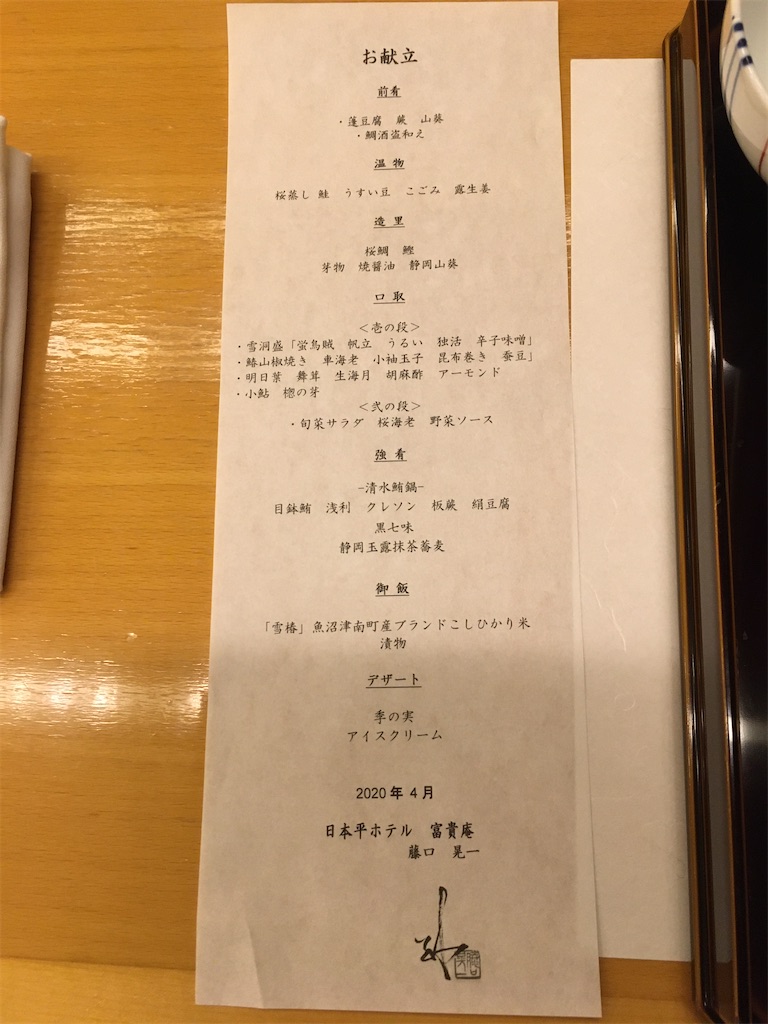 お献立
前肴
・蓬豆腐　蕨　山葵
・鯛酒盗和え
温物
桜蒸し 鮭　うすい豆　こごみ　露生姜
造里
桜鯛　鰹
芽物　焼醤油　静岡山葵
口取
＜壱の段＞
・雪洞盛「蛍烏賊　帆立　うるい　独活　辛子味噌」
・鰆山椒焼き　車海老　小袖玉子　昆布巻き　蚕豆」
・明日葉　舞茸　生海月　胡麻酢　アーモンド
・小鮎　楤の芽
＜弐の段＞
・旬菜サラダ　桜海老　野菜ソース
強肴
−清水鮪鍋−
目鉢鮪　浅利　クレソン　板蕨　絹豆腐
黒七味
静岡玉露抹茶蕎麦
御飯
「雪椿」魚沼津南町産ブランドこしひかり米
漬物
デザート
季の実
アイスクリーム
2020年 4月
日本平ホテル　富貴庵
藤口　晃一